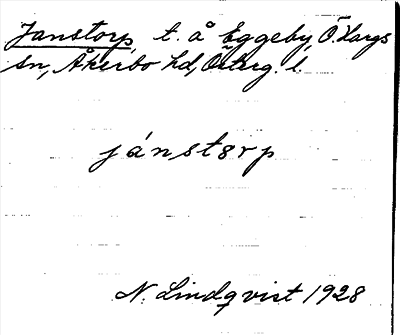 Janstorp, t. å Eggeby, Ö. Hargs
sn, Åkerbo hd, Österg. l.
jánstɜrp
N. Lindqvist 1928